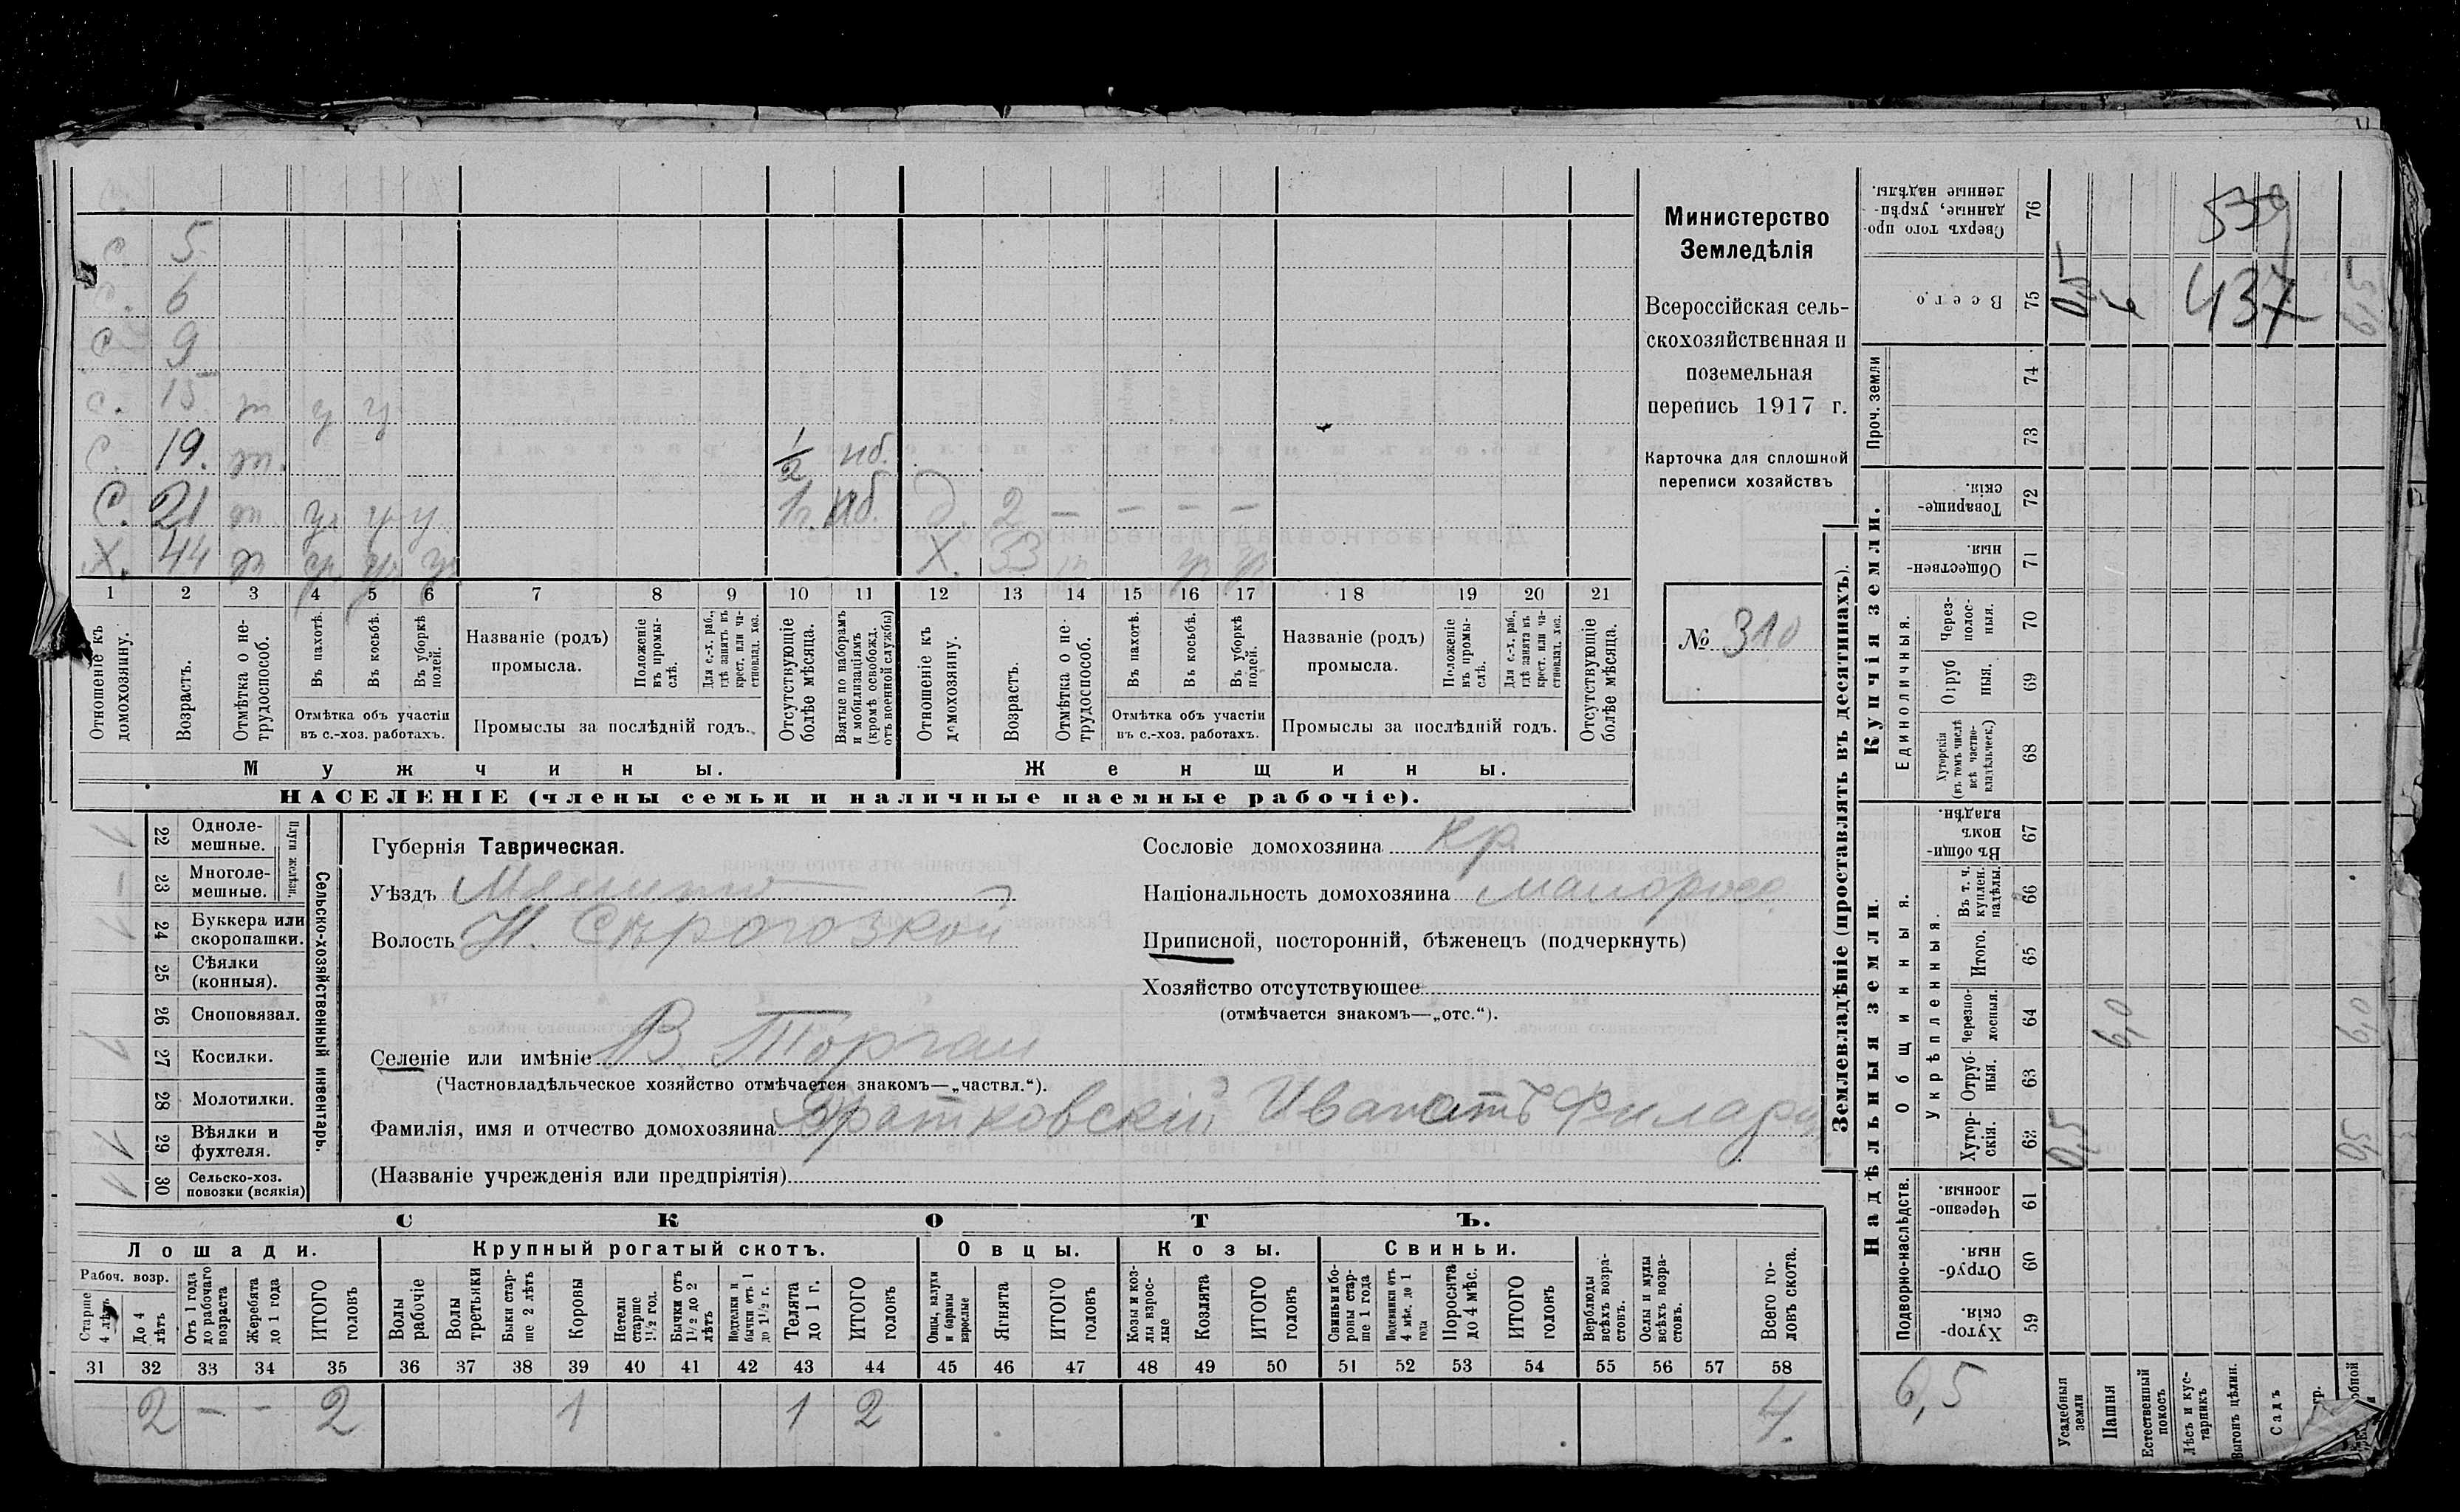 с. 5
с. 6
с 9
с. 15 п у у
с. 19. п. 1/2 нб.
С. 21 п у у у 1г. нб. д. 2 — — — —
Х. 44 п у у у Х. 33 п у у
1 2 3 4 5 6 7 8 9 10 11 12 13 14 15 16 17 18 19 20 21
Отношеніе къ домохозяину.
Возрастъ.
Отмѣтка о нетрудоспособ.
Въ пахотѣ.
Въ косьбѣ.
Въ уборкѣ полей.
Отмѣтка объ участіи
въ с.-хоз. работахъ.
Названіе (родъ)
промысла.
Положеніе въ промыслѣ.
Для с.-х. раб., гдѣ занятъ въ крест. или частновлад. хоз.
Промыслы за послѣдній годъ.
Отсутствующіе болѣе мѣсяца.
Взятые по наборамъ и мобилизаціямъ (кромѣ освобожд. отъ военной службы)
Отношеніе къ домохозяину.
Возрастъ.
Отмѣтка о нетрудоспособ.
Въ пахотѣ.
Въ косьбѣ.
Въ уборкѣ полей.
Отмѣтка объ участіи
въ с.-хоз. работахъ.
Названіе (родъ)
промысла.
Положеніе въ промыслѣ.
Для с.-х. раб., гдѣ занята въ крест. или частновлад. хоз.
Промыслы за послѣдній годъ.
Отсутствующіе болѣе мѣсяца.
Мужчины. Женщины.
НАСЕЛЕНІЕ (члены семьи и наличные наемные рабочіе).
Министерство
Земледѣлія
Всероссійская сель-
скохозяйственная и
поземельная
перепись 1917 г.
Карточка для сплошной
переписи хозяйствъ
№ 310
Сельско-хозяйственный инвентарь.
Плуги желѣзн.
1 22 Однолемешные.
— 23 Многолемешные.
1 24 Буккера или скоропашки.
25 Сѣялки (конныя).
26 Сноповязал.
1 27 Косилки.
28 Молотилки.
1 29 Вѣялки и фухтеля.
1 30 Сельско-хоз. повозки (всякія)
Губернія Таврическая.
Уѣздъ Мелито
Волость Н. Сѣрогозкой
Селеніе или имѣніе В. Торгаи
(Частновладѣльческое хозяйство отмѣчается знакомъ—„частвл.“).
Фамилія, имя и отчество домохозяина Братковскій Иванъ
(Названіе учрежденія или предпріятія)
Сословіе домохозяина кр
Національность домохозяина малоросс.
Приписной, посторонній, бѣженецъ (подчеркнуть)
Хозяйство отсутствующее
(отмѣчается знакомъ—„отс.“).
СКОТЪ.
Лошади. Крупный рогатый скотъ. Овцы. Козы. Свиньи.
Рабоч. возр.
Старше 4 лѣтъ
До 4 лѣтъ
Отъ 1 года до рабочаго возраста
Жеребята до 1 года
ИТОГО головъ
Волы рабочіе
Волы третьяки
Быки старше 2 лѣтъ
Коровы
Нетели старше 1½ год.
Бычки отъ 1½ до 2 лѣтъ
Подтелки и бычки отъ 1 до 1½ г.
Телята до 1 г.
ИТОГО головъ
Овцы, валухи и бараны взрослые
Ягнята
ИТОГО головъ
Козы и козлы взрослые
Козлята
ИТОГО головъ
Свиньи и боровы старше 1 года
Подсвинки отъ 4 мѣс. до 1 года
Поросята до 4 мѣс.
ИТОГО головъ
Верблюды всѣхъ возрастовъ.
Ослы и мулы всѣхъ возрастовъ.
Всего головъ скота.
31 32 33 34 35 36 37 38 39 40 41 42 43 44 45 46 47 48 49 50 51 52 53 54 55 56 57 58
2 — — 2 1 1 2 4.
Землевладѣніе (проставлять въ десятинахъ).
Сверхъ того проданные, укрѣпленные надѣлы. 76
Всего 75
Проч. земли 74 73
Купчія земли.
Товарищескія. 72
Общественныя. 71
Единоличныя.
Черезполосныя. 70
Отрубныя. 69
Хуторскія (въ томъ числѣ всѣ частновладѣльческ.) 68
Надѣльныя земли.
Общинныя.
Въ общинномъ владѣн. 67
Укрѣпленныя.
Въ т. ч. куплен. надѣлы. 66
Итого. 65
Черезполосныя. 64
Отрубныя. 63
Хуторскія. 62
Подворно-наслѣдств.
Черезполосныя. 61
Отрубныя. 60
Хуторскія 59
Усадебныя земли
Пашня
Естественный покосъ
Лѣсъ и кустарникъ
Выгонъ цѣлин.
Садъ
539
437
0,5
6
6,5
6,0
6,0
0,5
6,5